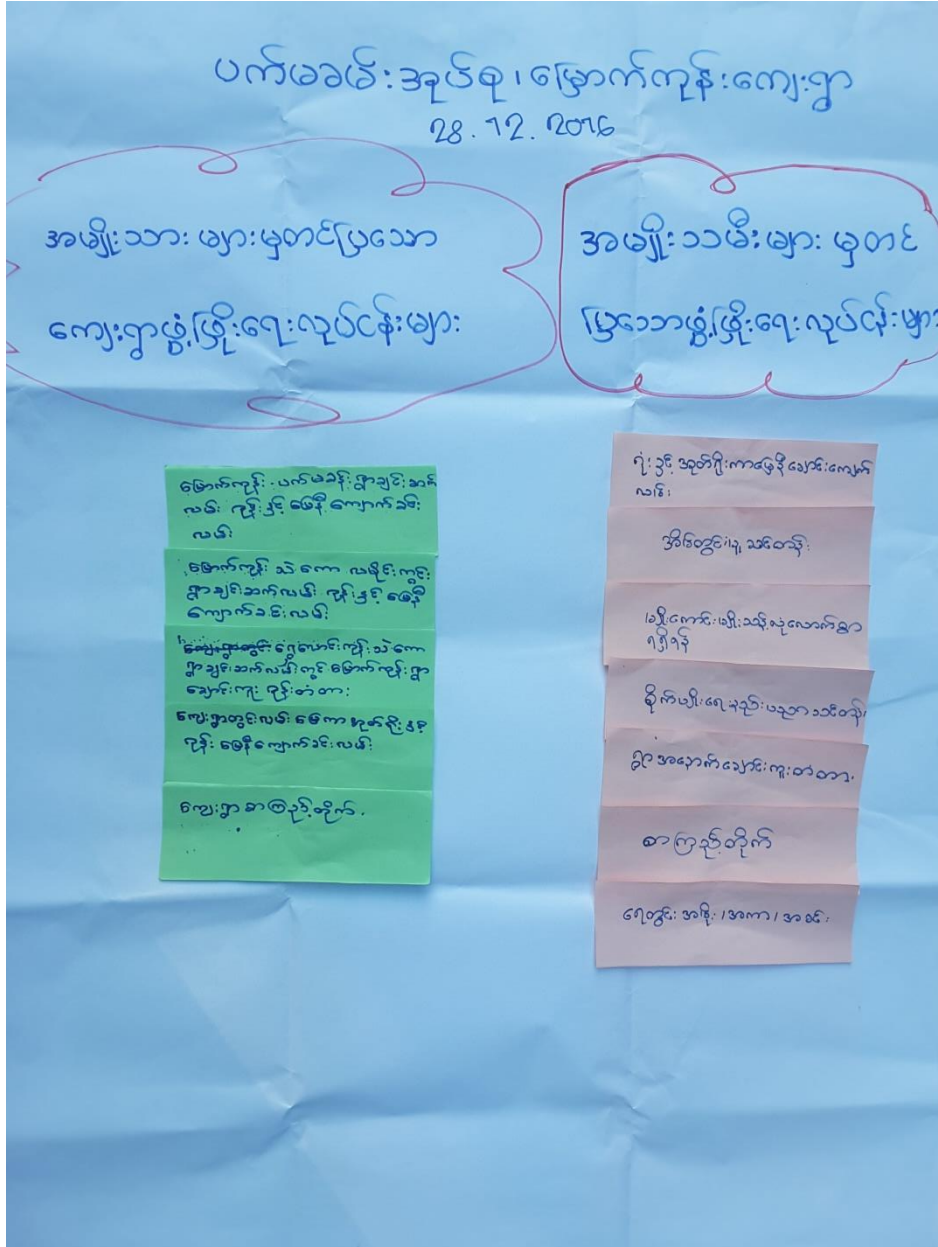 ပက်မခမ်းအုပ်စု၊ မြောက်ကုန်းကျေးရွာ
28.12.2016
အမျိုးသားများမှတင်ပြသော
ကျေးရွာဖွံ့ဖြိုးရေးလုပ်ငန်းများ
အမျိုးသမီးများမှတင်
ပြသောဖွံ့ဖြိုးရေးလုပ်ငန်းများ
မြောက်ကုန်း - ပက်မခန်းရွာချင်းဆက်
လမ်း ဂုန်းနှင့် မြေနီကျောက်ခင်း
လမ်း
မြောက်ကုန်း သဲကော လမိုင်းကွင်း
ရွာချင်းဆက်လမ်း ဂုန်းနှင့် မြေနီ
ကျောက်ခင်းလမ်း
ကုန်း သဲကော
ရွာချင်းဆက်လမ်းတွင် မြောက်ကုန်းရွာ
ချောင်းကူး ဂုန်းတံတား
ကျေးရွာတွင်းလမ်း မြေကာအုတ်ရိုးနှင့်
ဂုန်း မြေနီကျောက်ခင်းလမ်း
ကျေးရွာစာကြည့်တိုက်.
ရုံးနှင့် အုတ်ရိုးကာမြေနီချောင်းကျောက်
လမ်း
အိမ်တွင်းမှု သင်တန်း
မျိုးကောင်းမျိုးသန့်လုံလောက်စွာ
ရရှိရန်
စိုက်ပျိုးရေးနည်းပညာသင်တန်း
ရွာအနောက်ချောင်းကူးတံတား
စာကြည့်တိုက်
ရေတွင်း အဖုံး၊ အကာ၊ အခင်း